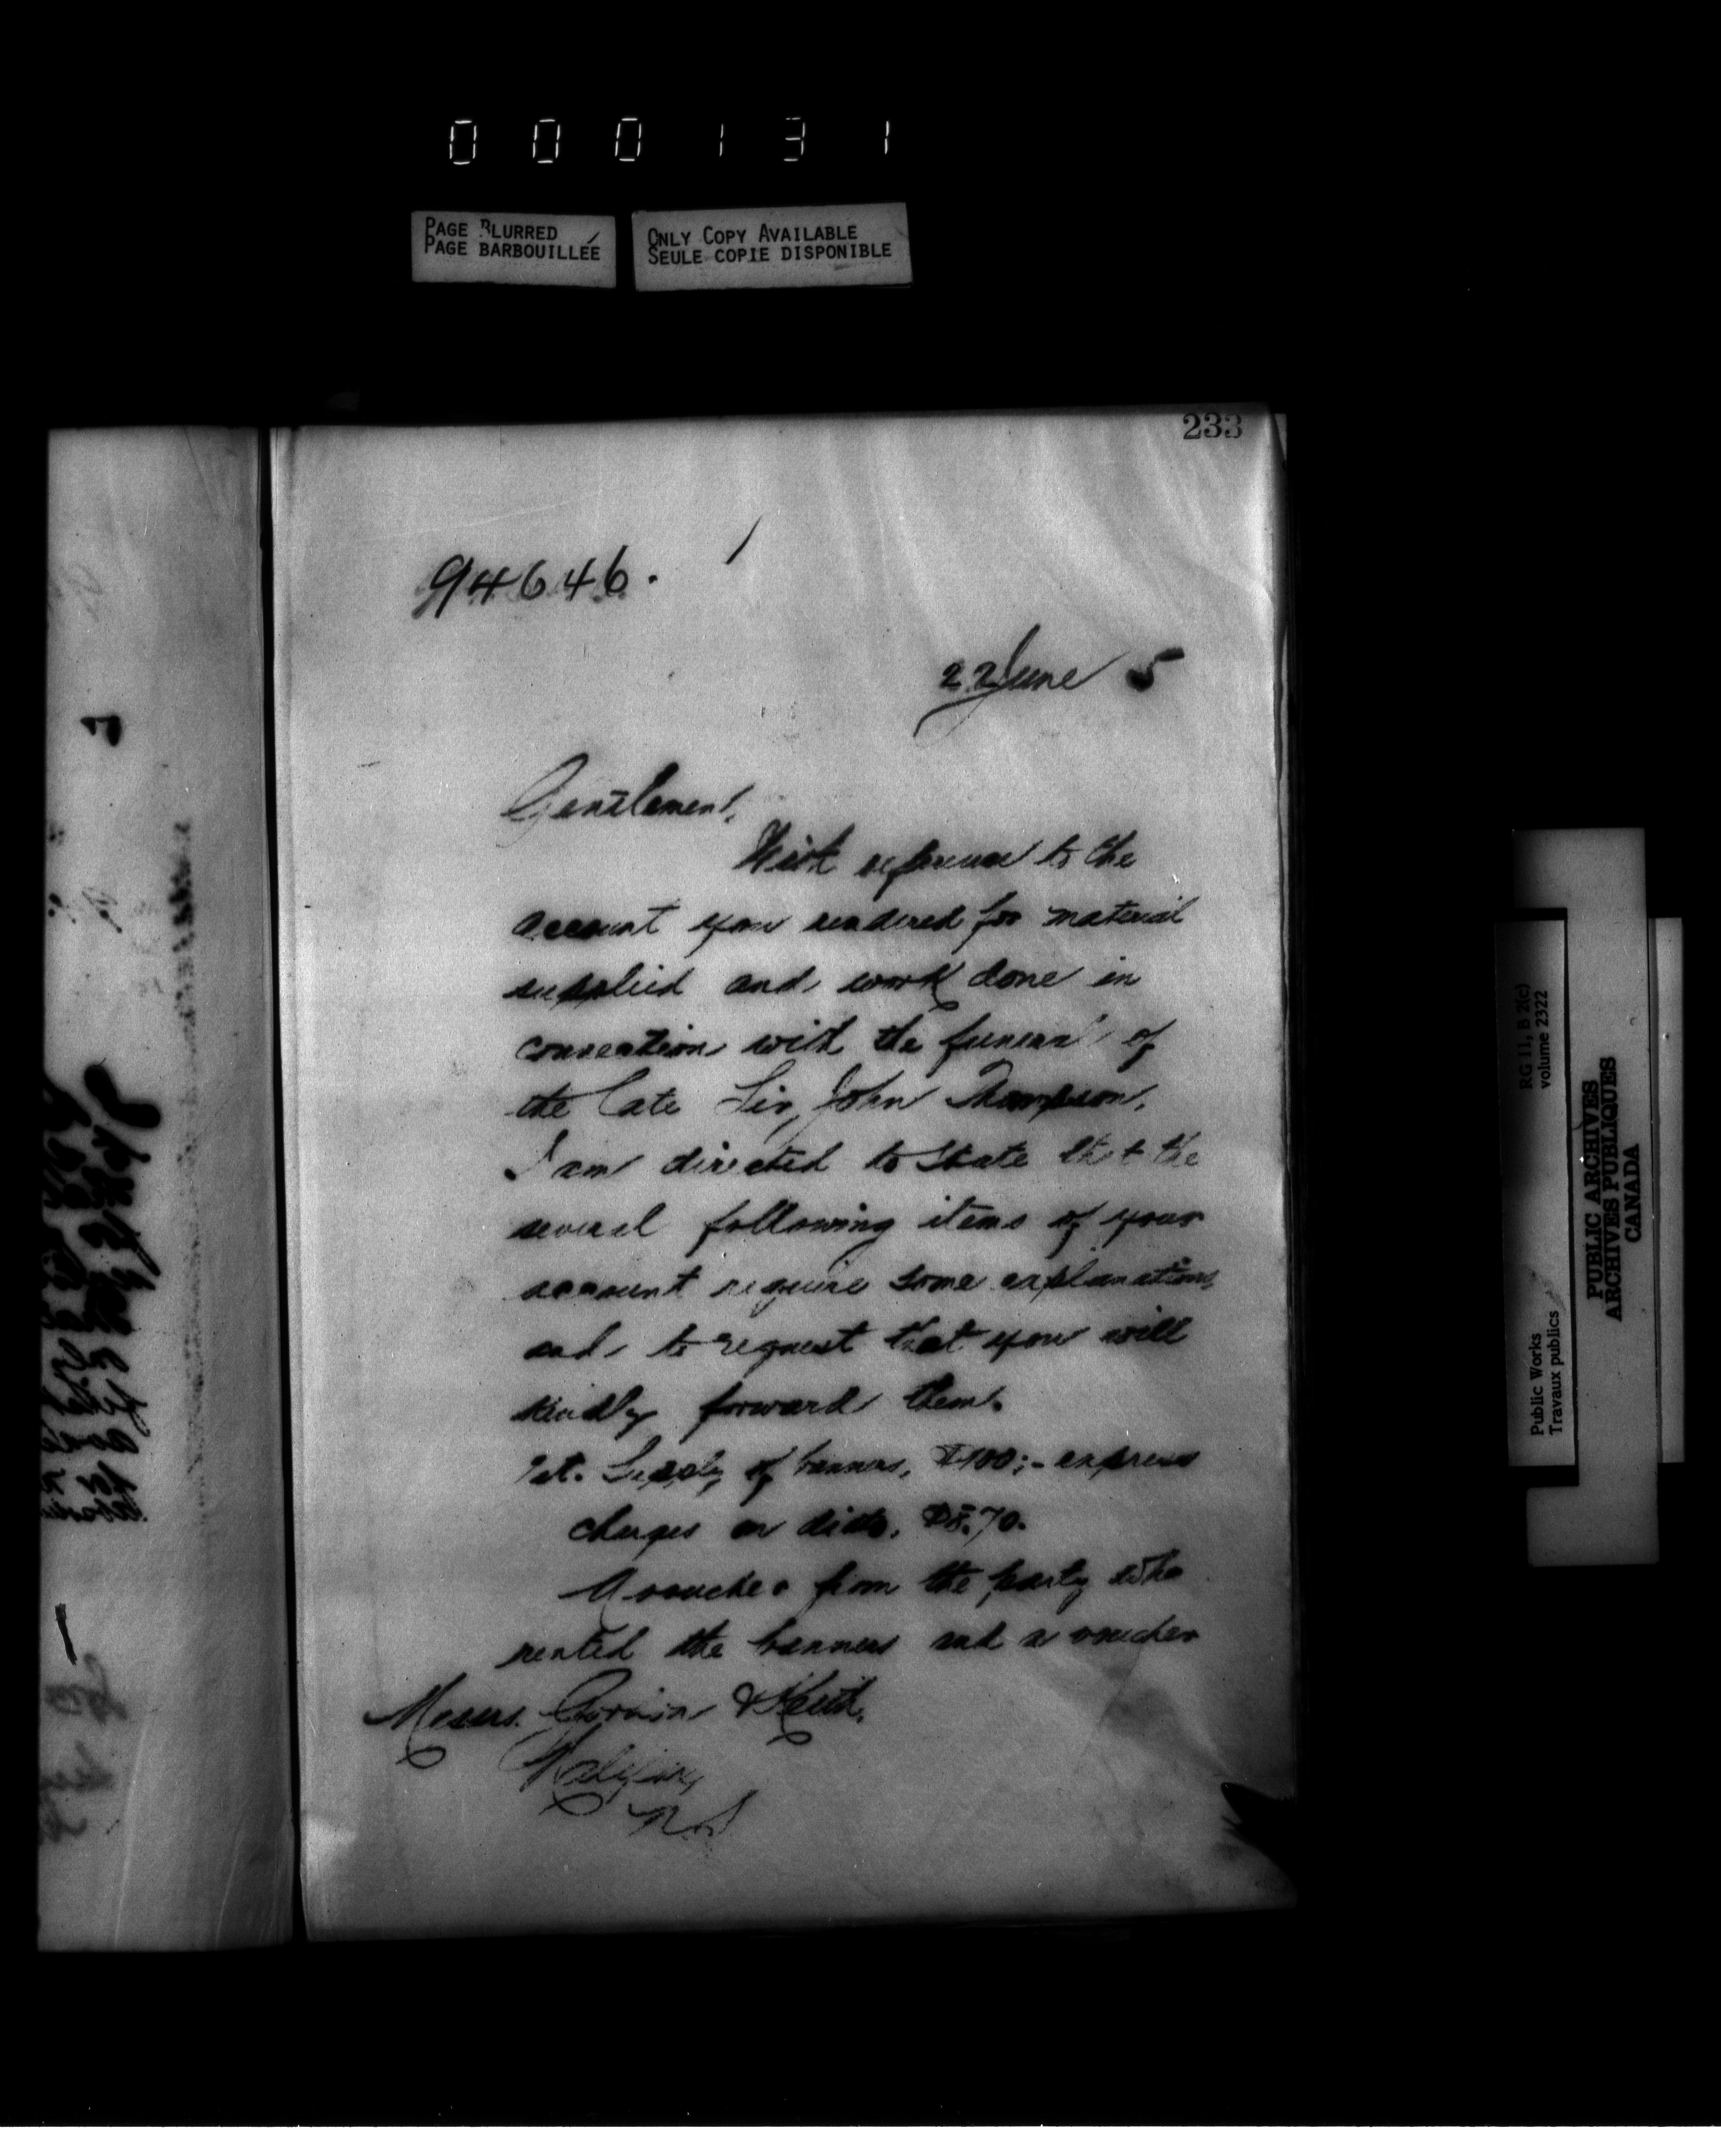 000131
PAGE BLURRED
PAGE BARBOUILLÉE
ONLY COPY AVAILABLE
SEULE COPIE DISPONIBLE
233
94646.
22 June 5
Gentlemen,
With reference to the
account you rendered for material
supplied and work done in
connection with the funeral of
the late Sir John Thompson,
I am directed to state that the
several following items of your
account require some explanations
and to request that you will
kindly forward them.
1st. Supply of banners, $100;- express
charges on ditto, $8.70.
A voucher from the party who
rented the banners and a voucher
Messrs. & Keith,
Halifax,
N.S
RG 11, B 2(c)
volume 2322
Public Works
Travaux publics
PUBLIC ARCHIVES
ARCHIVES PUBLIQUES
CANADA